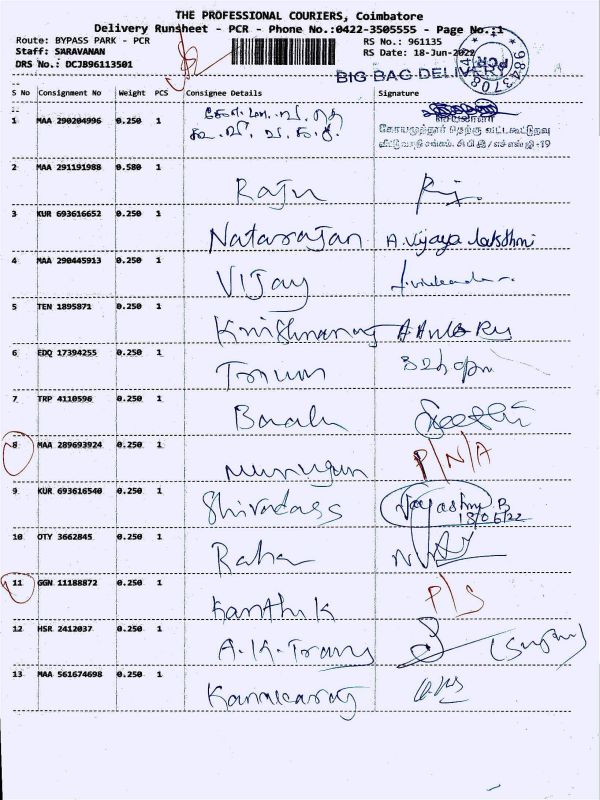 THE PROFESSIONAL COURIERS, Coimbatore
Delivery Runsheet - PCR - Phone No.:0422-3505555 - Page No.:1
Route: BYPASS PARK - PCR RS No.: 961135
Staff: SARAVANAN RS Date: 18-Jun-2022
DRS No.: DCJB96113501
BIG BAG DELIVERY
PCR 9843708
S No Consignment No Weight PCS Consignee Details Signature
1 MAA 290204996 0.250 1
கோயமுத்தூர் தெற்கு வட்ட கூட்டுறவு
வீட்டு வசதி சங்கம்.
2 MAA 291191988 0.580 1 Raju
3 KUR 693616652 0.250 1 Natarajan A. Vijaya lakshmi
4 MAA 290445913 0.250 1 Vijay
5 TEN 1895871 0.250 1 Krishnaraj
6 EDQ 17394255 0.250 1
7 TRP 4110596 0.250 1
8 MAA 289693924 0.250 1 Murugan P/N/A
9 KUR 693616540 0.250 1 Shivadass Jayashry B
18/06/22
10 OTY 3662845 0.250 1
11 GGN 11188872 0.250 1 Karthik P/S
12 HSR 2412037 0.250 1 A.K. Trans
13 MAA 561674698 0.250 1 Kanakaraj